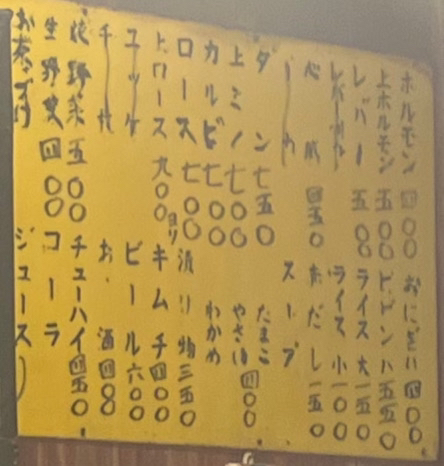 ホルモン 四〇〇
上ホルモン 五〇〇
レバー 五〇〇
心 四五〇
タン 七五〇
上ミノ 七〇〇
カルビ 七〇〇
ロース 七〇〇
上ロース 九〇〇
ユッケ
焼野菜 五〇〇
生野菜 四〇〇
お茶づけ
おにぎり 四〇〇
ビビンバ 五五〇
ライス 大一五〇
ライス 小一〇〇
だし 一五〇
スープ
たまご
やさい 四〇〇
わかめ
漬り物 三五〇
キムチ 四〇〇
ビール 六〇〇
お酒 四〇〇
チューハイ 四五〇
コーラ
ジュース